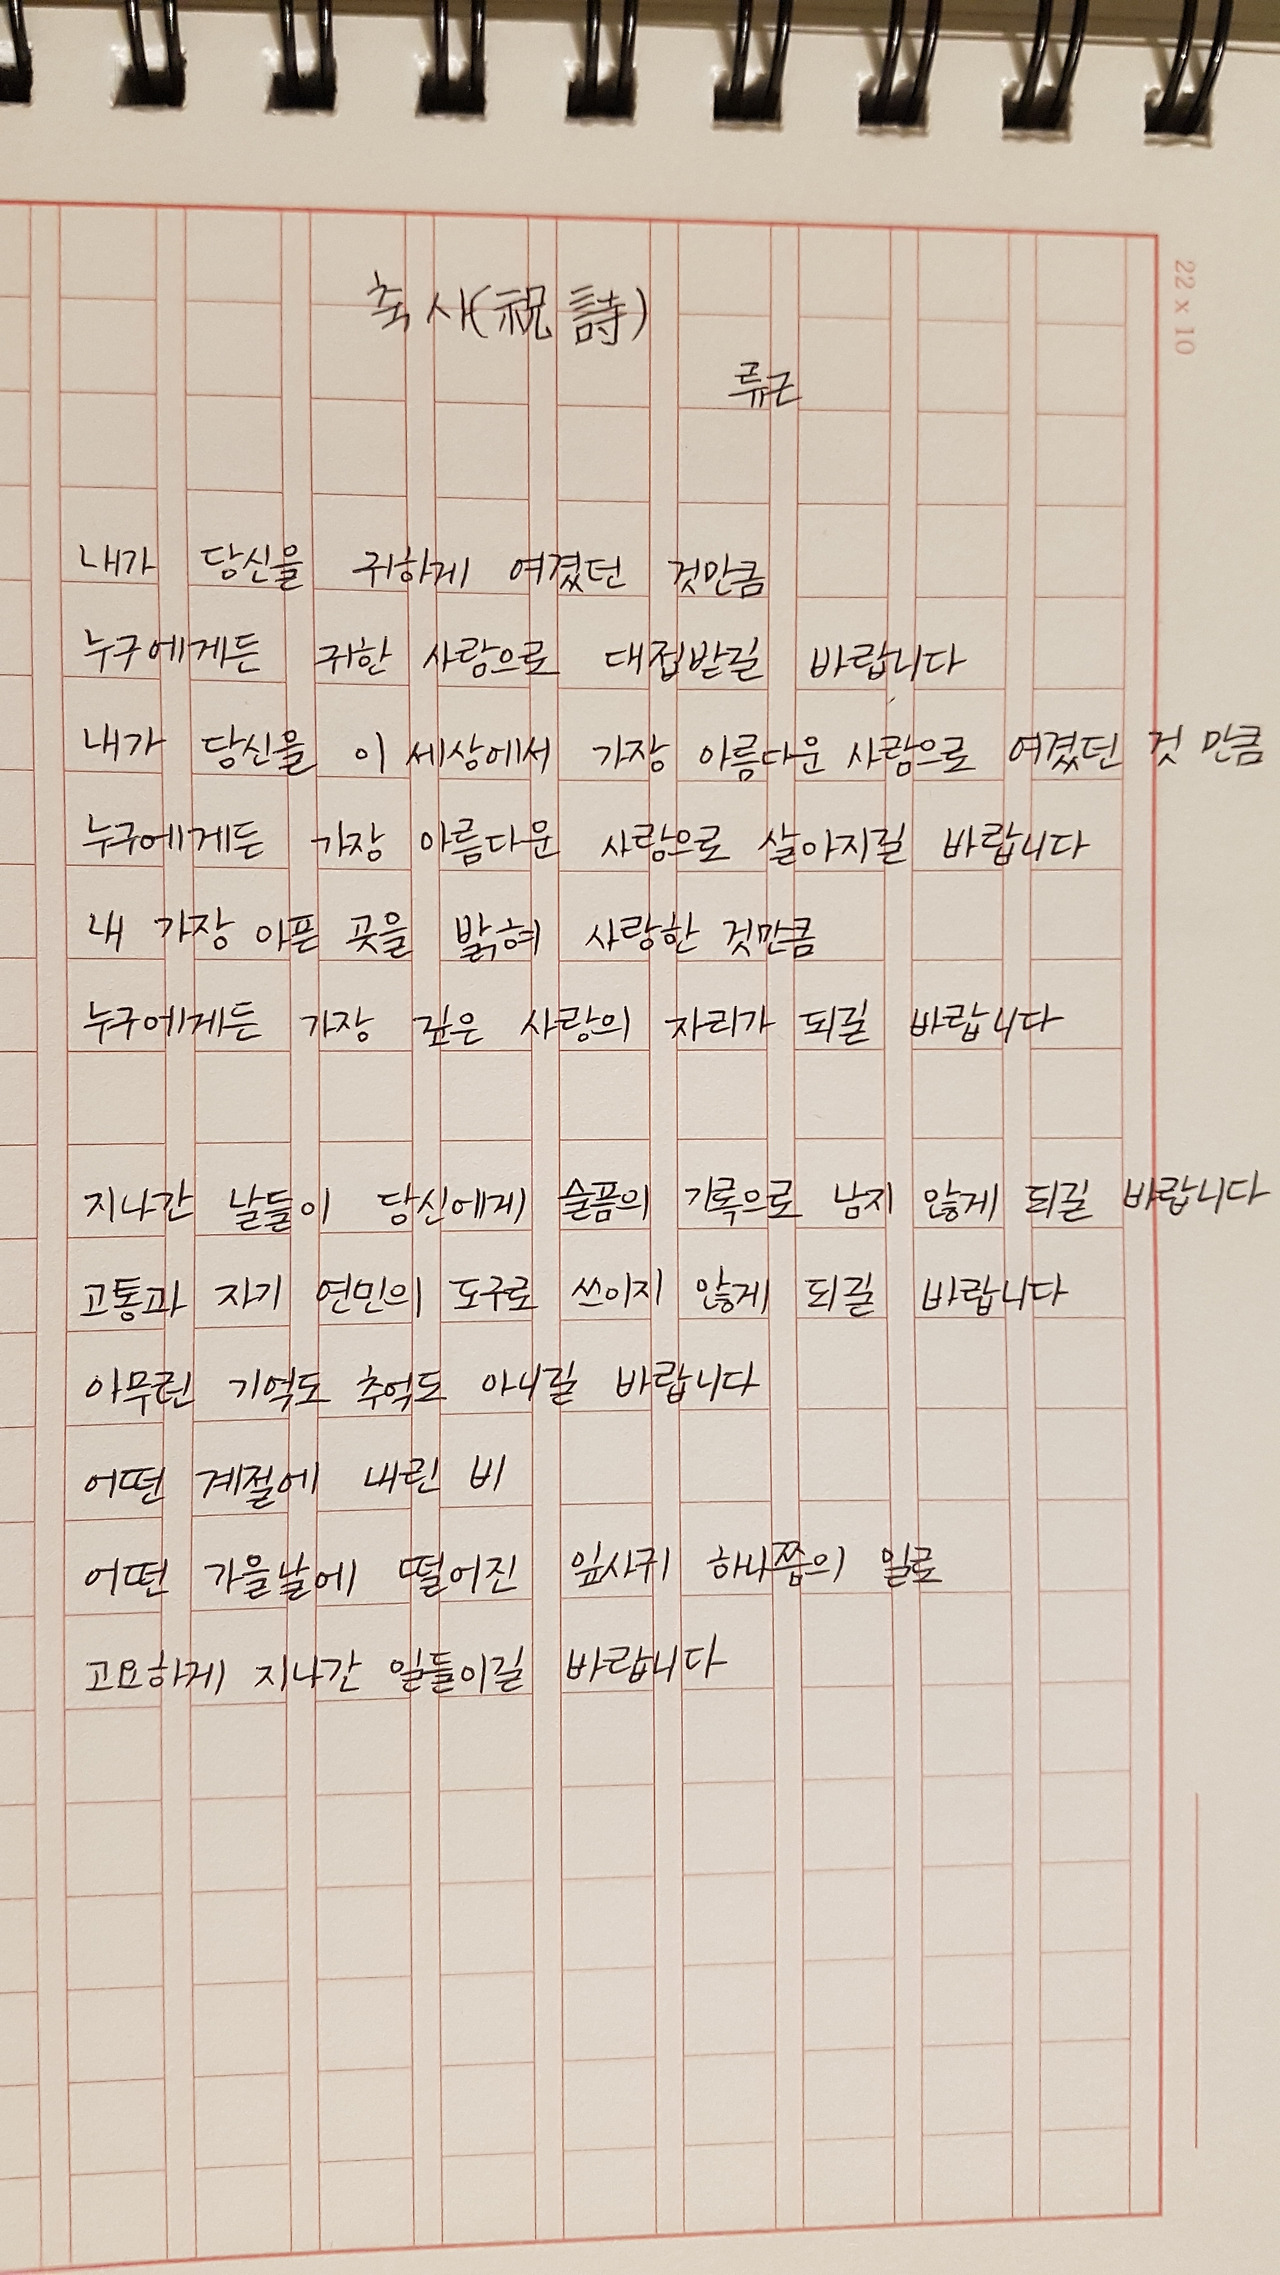 축사(祝詩)
류근
22 x 10
내가 당신을 귀하게 여겼던 것만큼
누구에게든 귀한 사람으로 대접받길 바랍니다
내가 당신을 이 세상에서 가장 아름다운 사람으로 여겼던 것 만큼
누구에게든 가장 아름다운 사람으로 살아지길 바랍니다
내 가장 아픈 곳을 밝혀 사랑한 것만큼
누구에게든 가장 깊은 사랑의 자리가 되길 바랍니다
지나간 날들이 당신에게 슬픔의 기록으로 남지 않게 되길 바랍니다
고통과 자기 연민의 도구로 쓰이지 않게 되길 바랍니다
아무런 기억도 추억도 아니길 바랍니다
어떤 계절에 내린 비
어떤 가을날에 떨어진 잎사귀 하나쯤의 일로
고요하게 지나간 일들이길 바랍니다